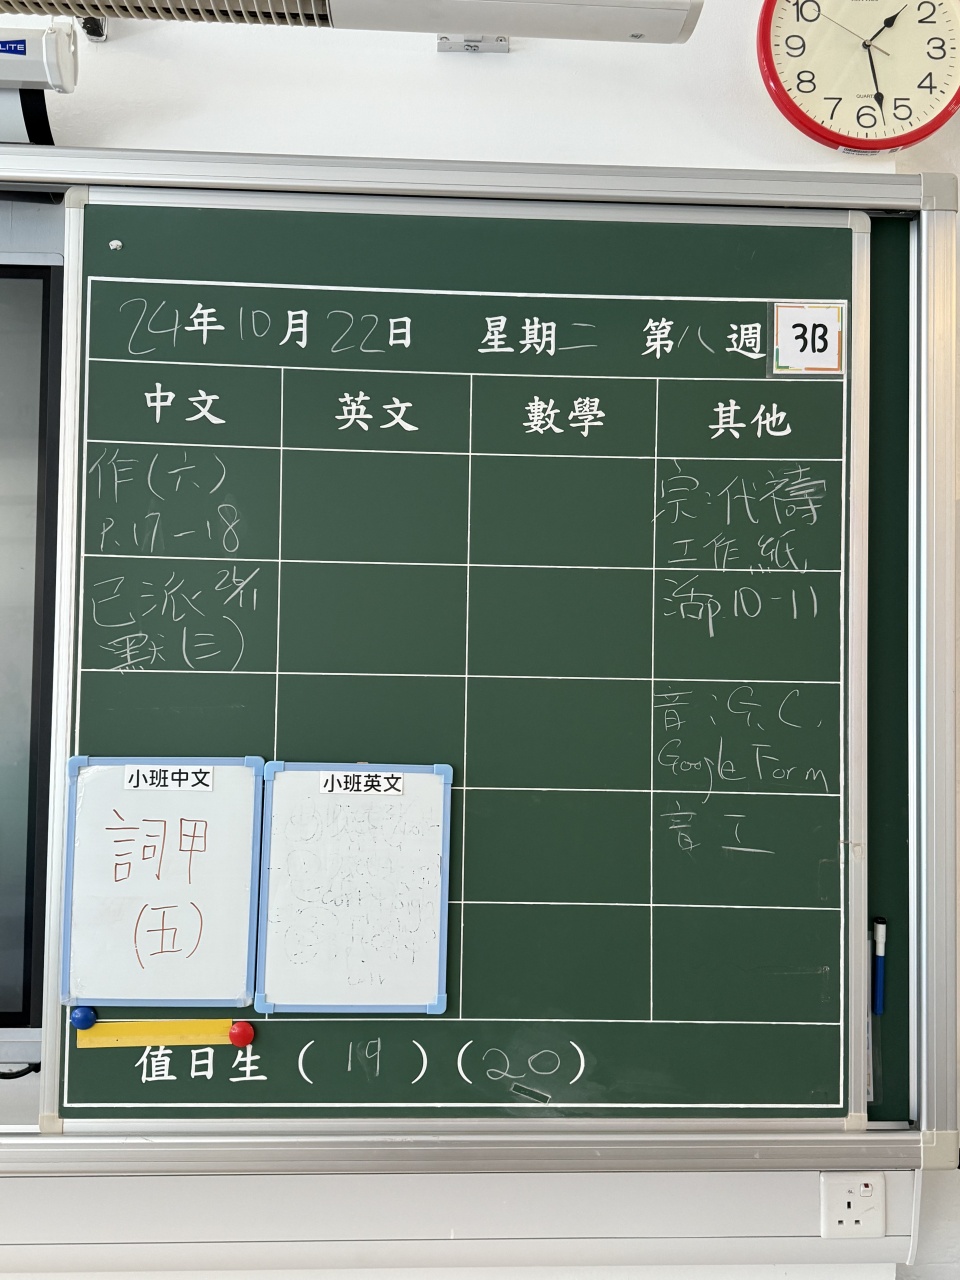 LITE
10 2
9 3
8 4
7 6 5
QUARTZ
24年10月22日 星期二 第八週 3B
中文 英文 數學 其他
作(六)
P.17-18
宗:代禱
工作紙
已派
默(三)
活p.10-11
音:G.C.
Google Form
音工
小班中文
詞甲
(五)
小班英文
值日生(19)(20)